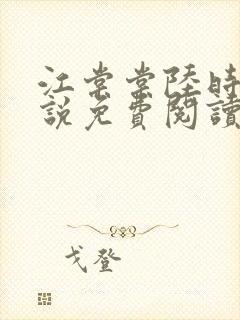 江棠棠陸時
說免費閱讀
戈登